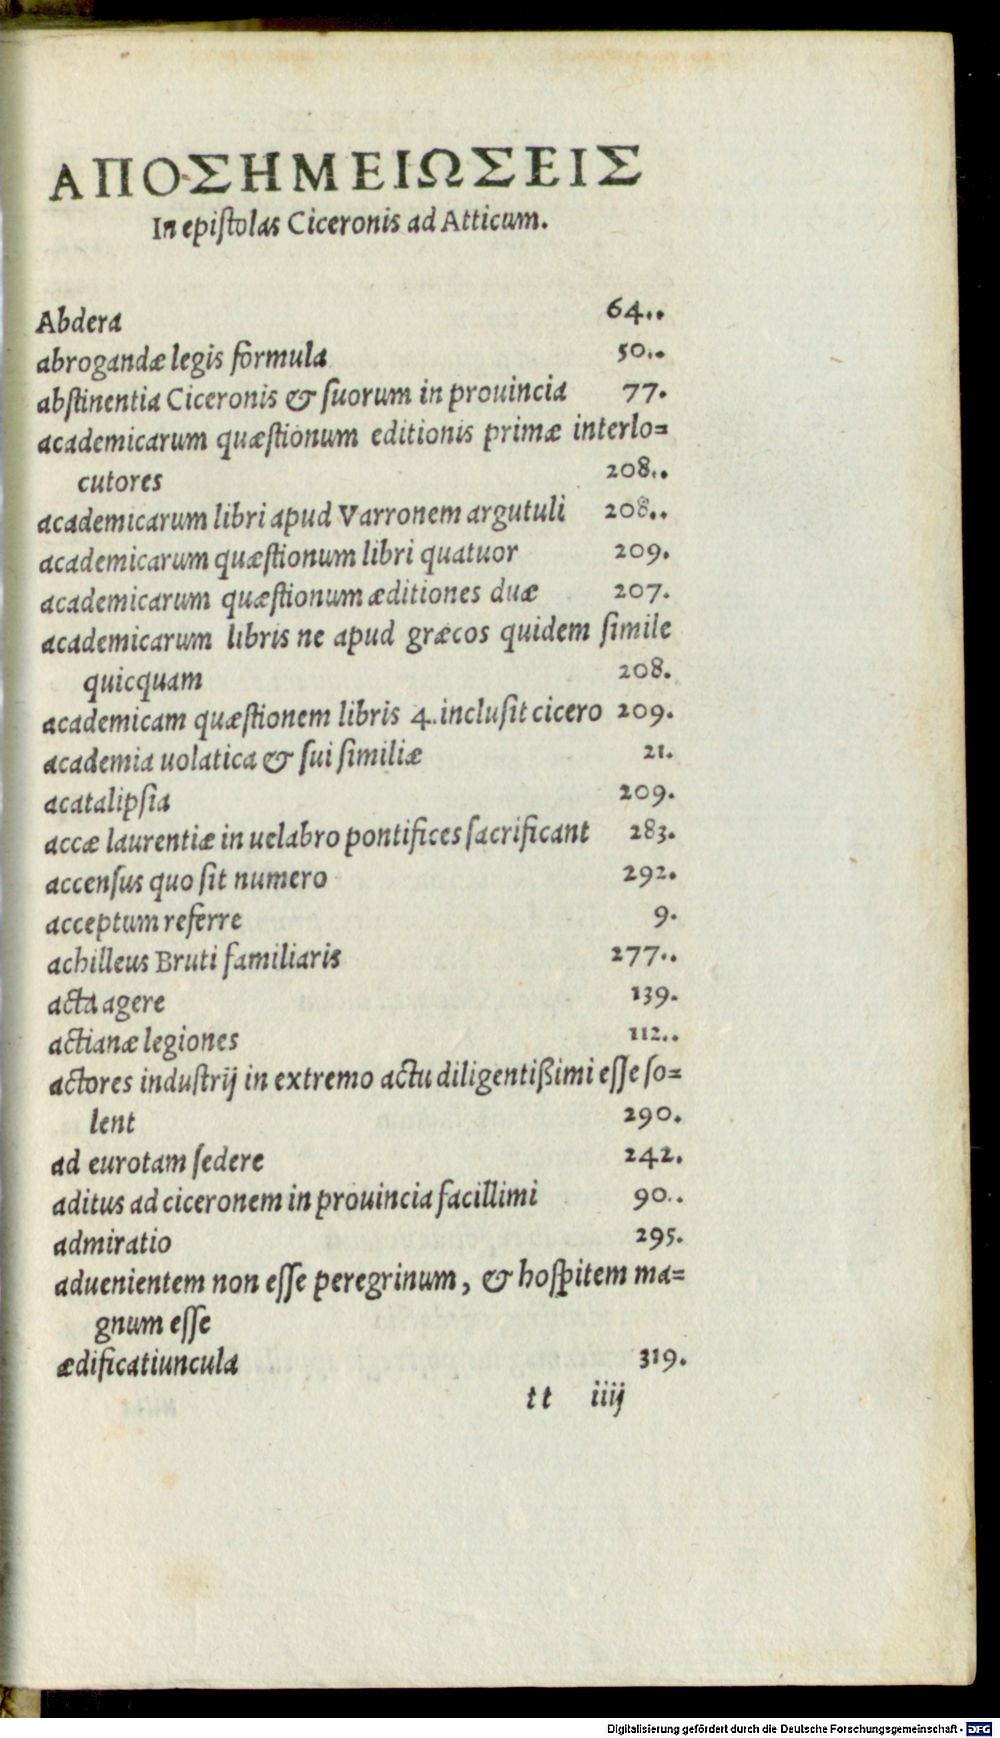 ΑΠΟΣΗΜΕΙΩΣΕΙΣ
In epiſtolas Ciceronis ad Atticum.
Abdera 64..
abrogandæ legis formula 50..
abſtinentia Ciceronis & ſuorum in prouincia 77.
academicarum quæſtionum editionis primæ interlo=
cutores 208..
academicarum libri apud Varronem argutuli 208..
academicarum quæſtionum libri quatuor 209.
academicarum quæſtionum æditiones duæ 207.
academicarum libris ne apud græcos quidem ſimile
quicquam 208.
academicam quæſtionem libris 4. incluſit cicero 209.
academia uolatica & ſui ſimiliæ 21.
acatalipſia 209.
accæ laurentiæ in uelabro pontifices ſacrificant 283.
accenſus quo ſit numero 292.
acceptum referre 9.
achilleus Bruti familiaris 277..
acta agere 139.
actianæ legiones 112..
actores induſtrij in extremo actu diligentißimi eſſe ſo=
lent 290.
ad eurotam ſedere 242.
aditus ad ciceronem in prouincia facillimi 90..
admiratio 295.
aduenientem non eſſe peregrinum, & hoſpitem ma=
gnum eſſe
ædificatiuncula 319.
tt iiij
Digitalisierung gefördert durch die Deutsche Forschungsgemeinschaft - DFG